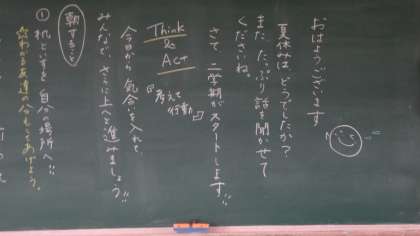 おはようございます
夏休みは、どうでしたか?
また、たっぷり話を聞かせて
くださいね。
さて、二学期がスタートします!!
Think
&
Act
『考えて
行動』
今日から、気合いを入れて、
みんなで、さらに上へと進みましょう!!
朝すること
① 机といすを自分の場所へ!!
終わる友達の分もしてあげよう。